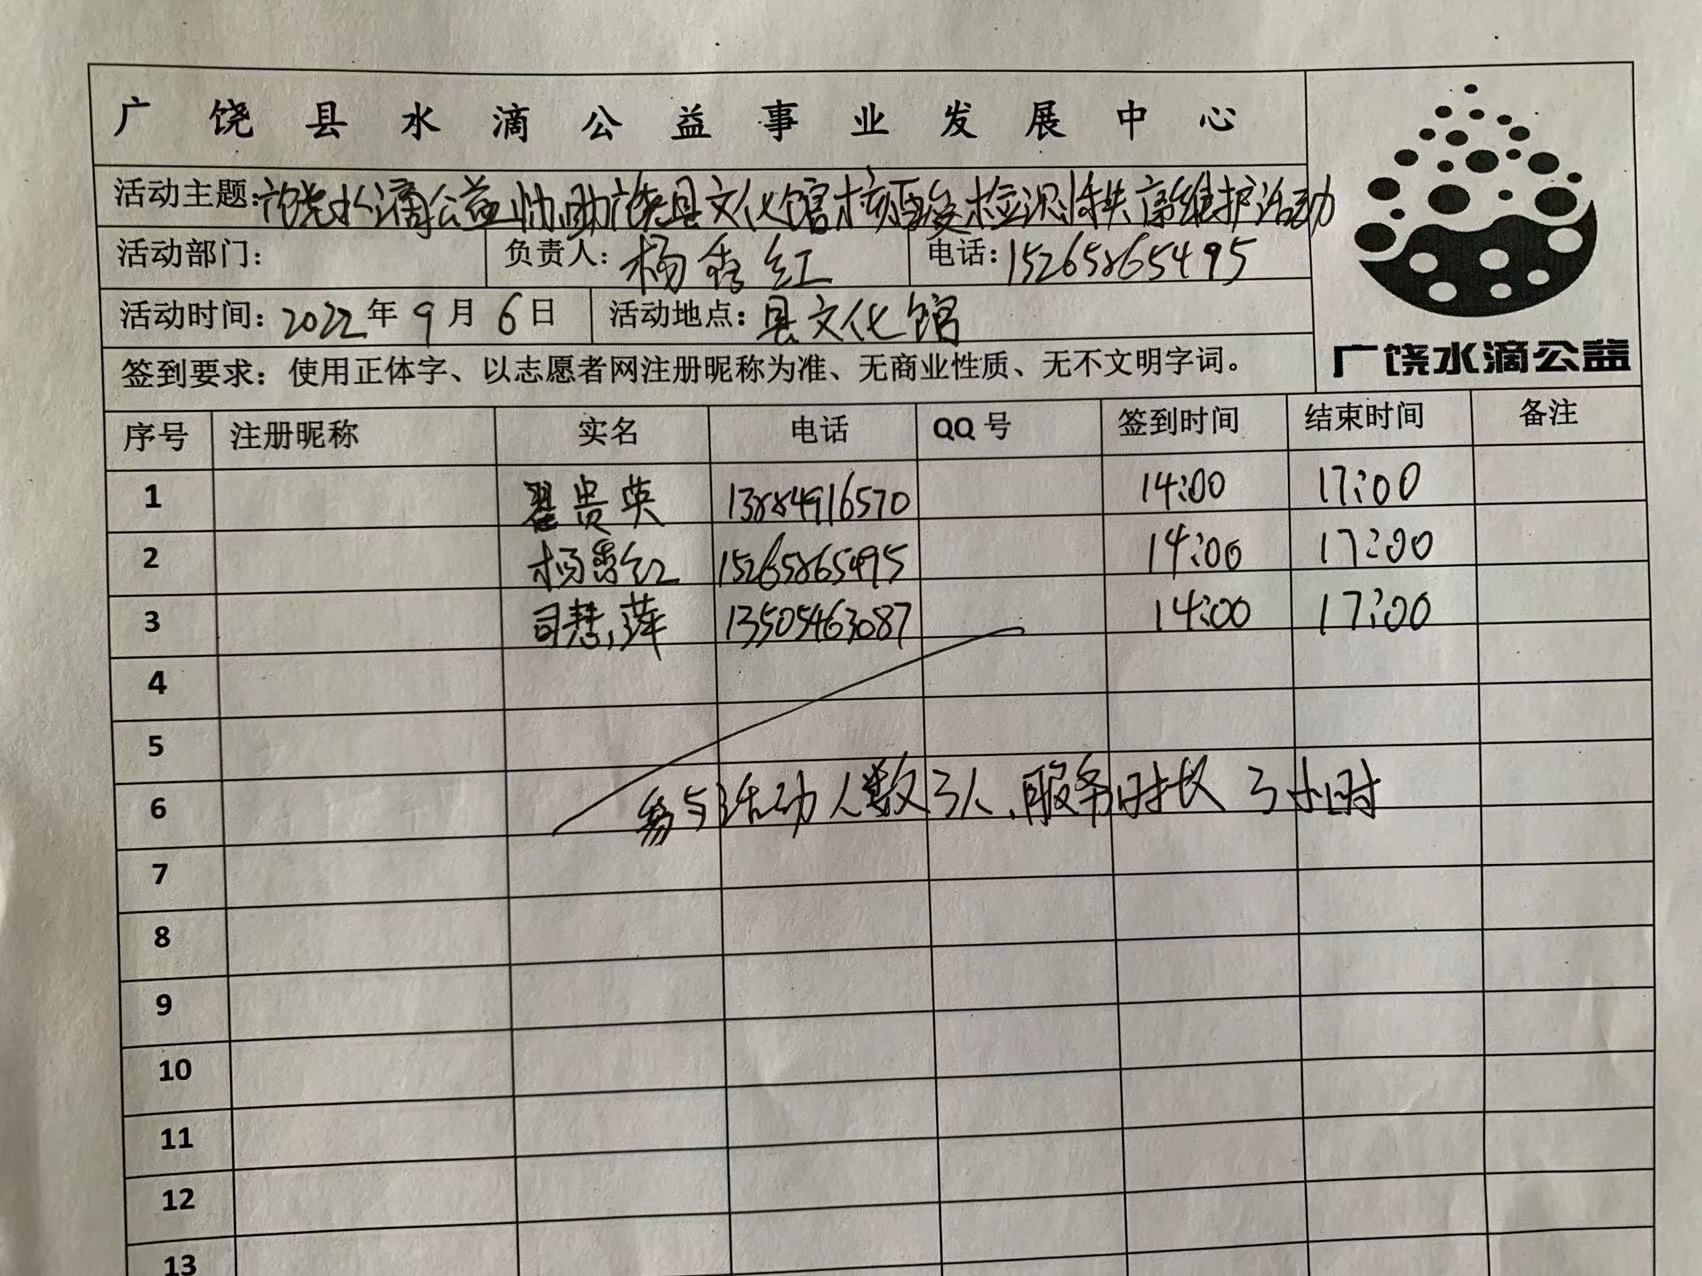 广饶县水滴公益事业发展中心
活动主题:广饶水滴公益协助广饶县文化馆核酸检测秩序维护活动
活动部门: 负责人:杨秀红 电话:15265865495
活动时间:2022年9月6日 活动地点:县文化馆
签到要求:使用正体字、以志愿者网注册昵称为准、无商业性质、无不文明字词。
广饶水滴公益
序号 注册昵称 实名 电话 QQ号 签到时间 结束时间 备注
1 翟贵英 13884916570 14:00 17:00
2 杨秀红 15265865495 14:00 17:00
3 司慧萍 13505463087 14:00 17:00
4
5
6 参与活动人数3人、服务时长3小时
7
8
9
10
11
12
13